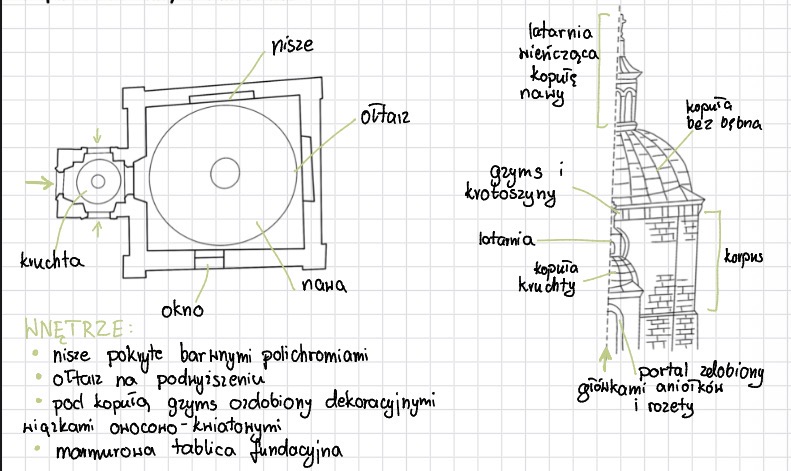 nisze
ołtarz
kruchta
nawa
okno
latarnia
wieńcząca
kopułę
nawy
kopuła
bez bębna
gzyms i
krotoszyny
latarnia
kopuła
kruchty
korpus
portal zdobiony
główkami aniołków
i rozety
WNĘTRZE:
• nisze pokryte barwnymi polichromiami
• ołtarz na podwyższeniu
• pod kopułą gzyms ozdobiony dekoracyjnymi
wiązkami owocowo-kwiatowymi
• marmurowa tablica fundacyjna